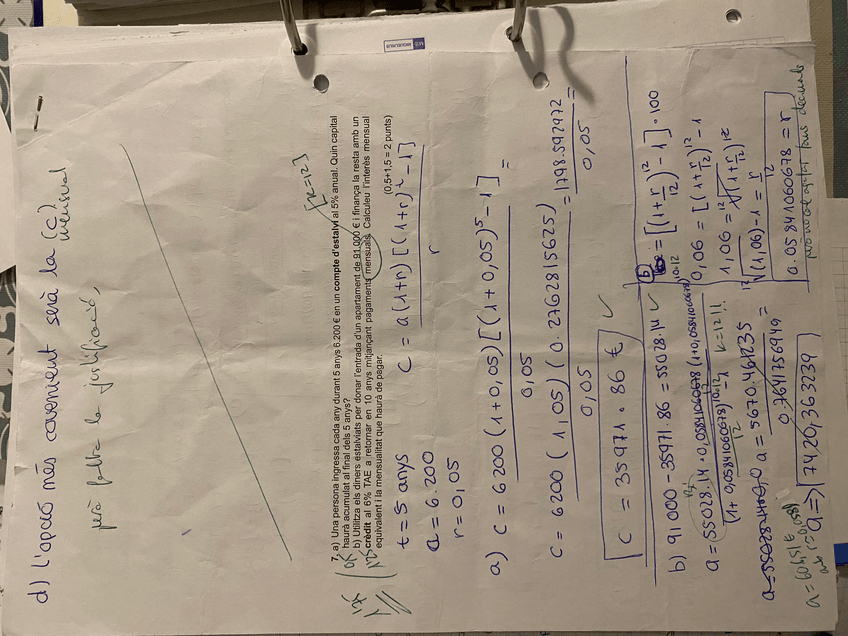 d) L'opció més convenient serà la (c)
mensual
però falta la justificació,
[k=12]
7. a) Una persona ingressa cada any durant 5 anys 6.200 € en un compte d'estalvi al 5% anual. Quin capital
haurà acumulat al final dels 5 anys?
b) Utilitza els diners estalviats per donar l'entrada d'un apartament de 91.000 € i finança la resta amb un
crèdit al 6% TAE a retornar en 10 anys mitjançant pagaments mensuals. Calculeu l'interès mensual
equivalent i la mensualitat que haurà de pagar.
(0,5+1,5 = 2 punts)
t = 5 anys
a = 6.200
r = 0,05
C = a(1+r)[(1+r)^t - 1]
r
a) C = 6200 (1+0,05)[(1+0,05)^5 - 1] =
0,05
C = 6200 (1,05) (0.2762815625) = 1798.592972 =
0,05 0,05
C = 35971.86 € ✓
b) 91000 - 35971.86 = 55028.14 ✓
a = 55028.14 · 0,05841060678 (1+0,05841060678)^10·12
12 12
(1 + 0,05841060678)^10·12 - 1 k=12!!
12
a = 5670.161235 =
0.7641756949
a => 7420,363239
a = 604,51 €
amb r = 0,0581
b) = [(1+r/12)^12 - 1] · 100
0,06 = [(1+r/12)^12 - 1
1,06 = (1+r/12)^12
12√(1,06) - 1 = r/12
0.05841060678 = r